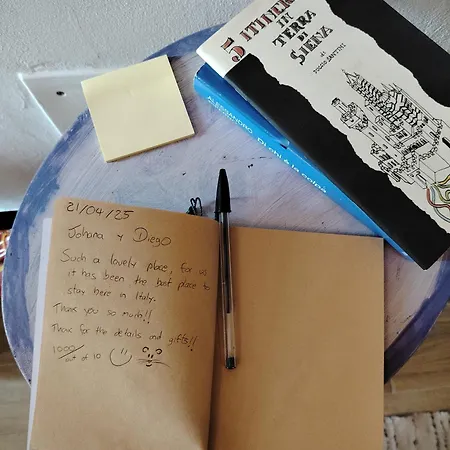 5 ITINERARI
IN
TERRA
DI
SIENA
di
ALESSANDRO
DI CHI È LA COLPA
21/04/25
Johana y Diego
Such a lovely place, for us
it has been the best place to
stay here in Italy.
Thank you so much!!
Thank for the details and gifts!!
1000/
out of 10